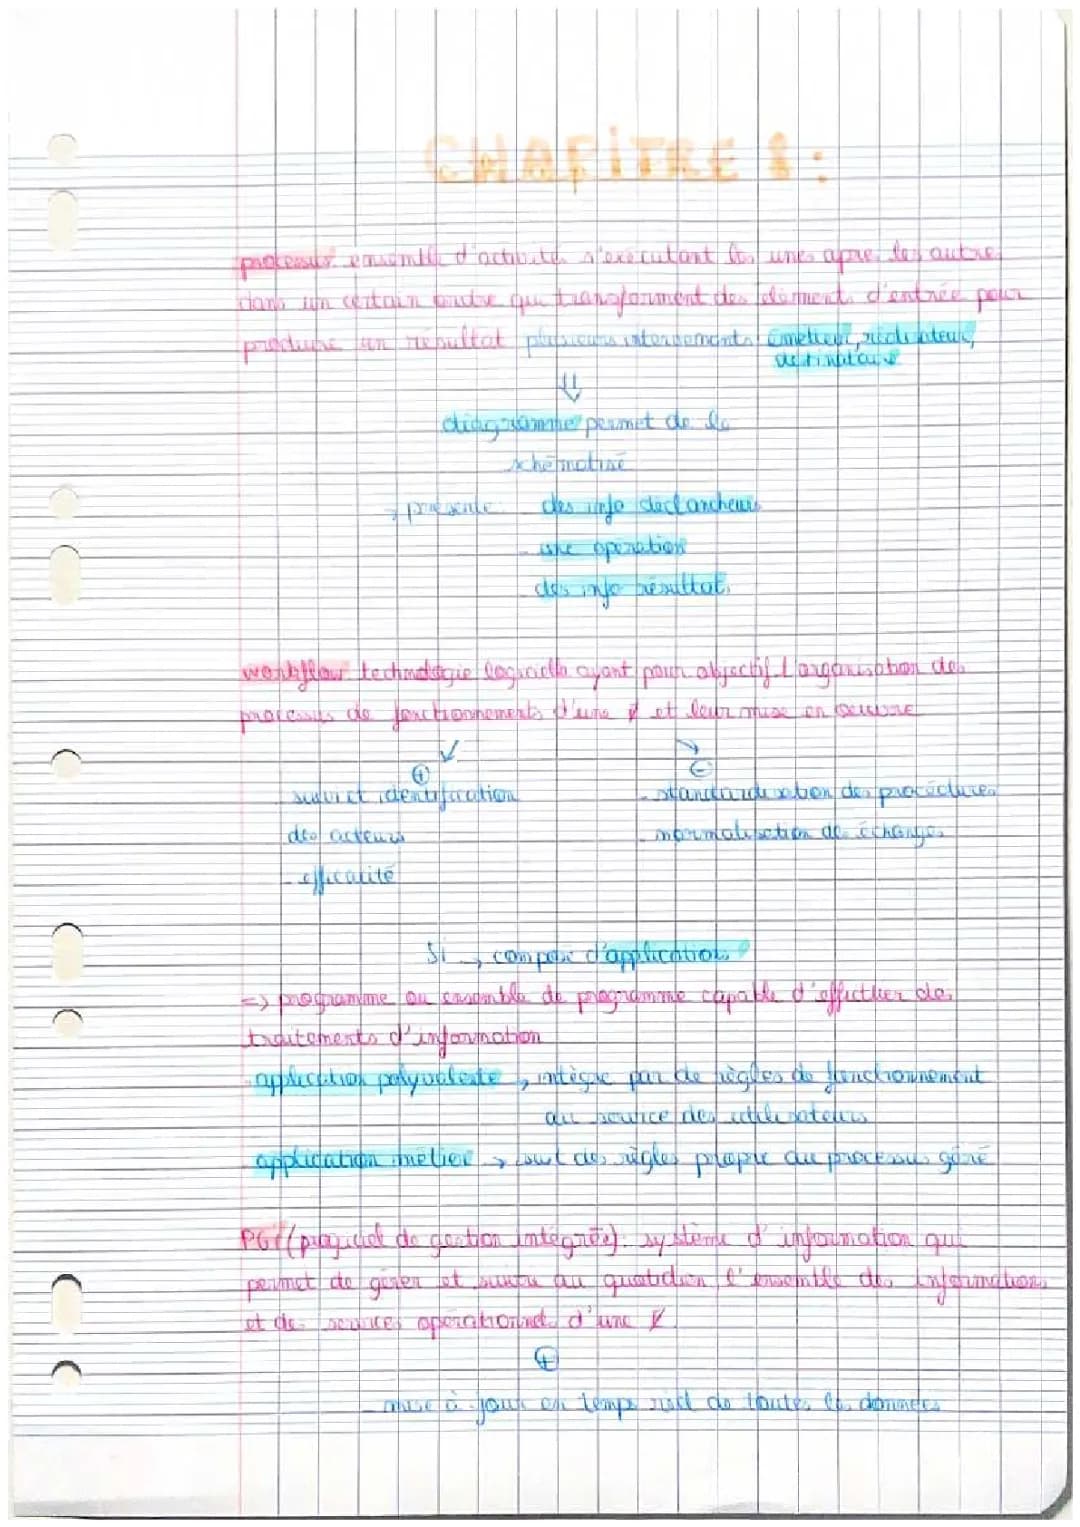 CHAPITRE 8 :
processus ensemble d'activités s'exécutant les unes apres les autres
dans un certain ordre qui transforment des éléments d'entrée pour
produire un résultat plusieurs intervenants : émetteur, rédicateur,
destinataire
⇓
diagramme permet de le
schématisé
→ présente : des info déclancheurs
- une opération
- des info résultats
workflow technologie logicielle ayant pour objectif l'organisation des
processus de fonctionnements d'une et leur mise en oeuvre
↙ ↘
⊕ ⊖
suivi et identification - standardisation des procédures
des acteurs - normalisation des échanges
- efficacité
SI → compose d'applications
=> programme ou ensemble de programme capable d'effectuer des
traitements d'information
- application polyvalente → intègre par de règles de fonctionnement
au service des utilisateurs
- application métier → suit des règles propre au processus géré
PGI (progiciel de gestion intégrée) : système d'information qui
permet de gérer et suivre au quotidien, l'ensemble des informations
et des services opérationnels d'une
⊕
- mise à jour en temps réel de toutes les données